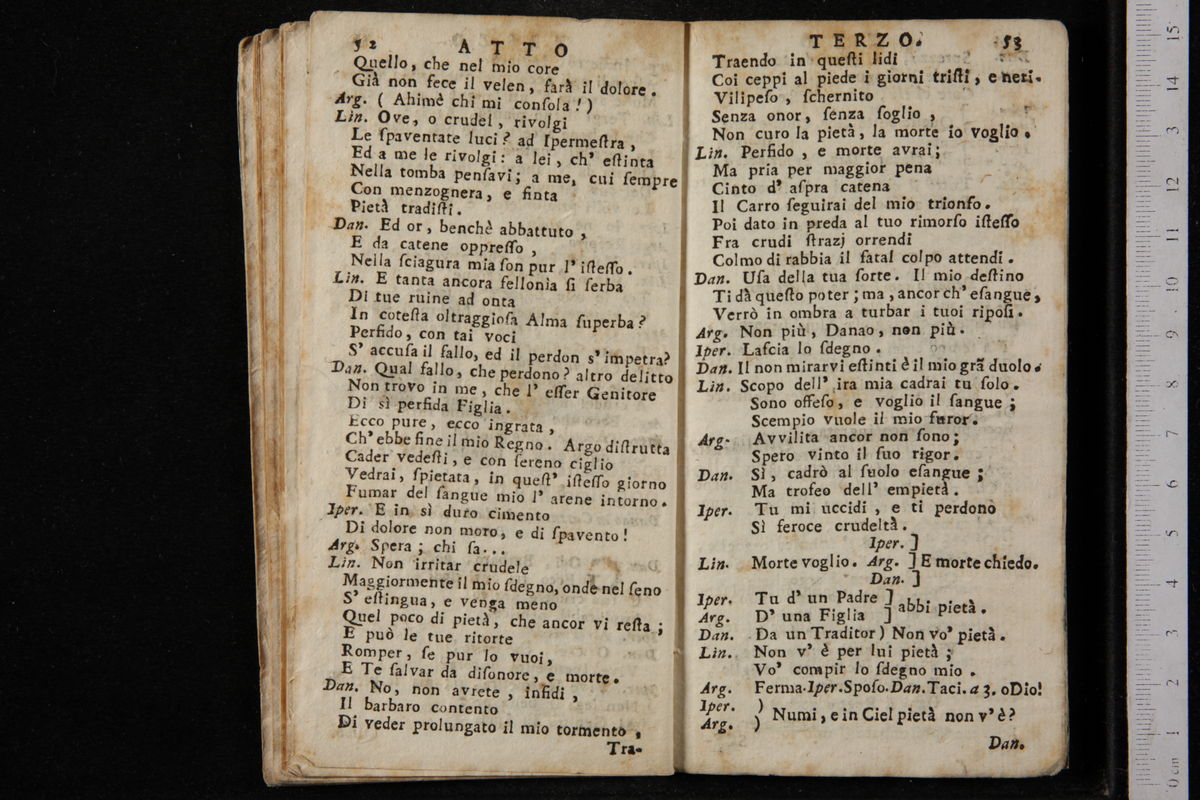 52 ATTO
Quello, che nel mio core
Già non fece il velen, farà il dolore.
Arg. ( Ahimè chi mi conſola! )
Lin. Ove, o crudel, rivolgi
Le ſpaventate luci? ad Ipermeſtra,
Ed a me le rivolgi: a lei, ch' eſtinta
Nella tomba penſavi; a me, cui ſempre
Con menzognera, e finta
Pietà tradiſti.
Dan. Ed or, benchè abbattuto,
E da catene oppreſſo,
Nella ſciagura mia ſon pur l' iſteſſo.
Lin. E tanta ancora fellonia ſi ſerba
Di tue ruine ad onta
In coteſta oltraggioſa Alma ſuperba?
Perfido, con tai voci
S' accuſa il fallo, ed il perdon s' impetra?
Dan. Qual fallo, che perdono? altro delitto
Non trovo in me, che l' eſſer Genitore
Di sì perfida Figlia.
Ecco pure, ecco ingrata,
Ch' ebbe fine il mio Regno. Argo diſtrutta
Cader vedeſti, e con ſereno ciglio
Vedrai, ſpietata, in queſt' iſteſſo giorno
Fumar del ſangue mio l' arene intorno.
Iper. E in sì duro cimento
Di dolore non moro, e di ſpavento!
Arg. Spera; chi ſa...
Lin. Non irritar crudele
Maggiormente il mio ſdegno, onde nel ſeno
S' eſtingua, e venga meno
Quel poco di pietà, che ancor vi reſta;
E può le tue ritorte
Romper, ſe pur lo vuoi,
E Te ſalvar da diſonore, e morte.
Dan. No, non avrete, infidi,
Il barbaro contento
Di veder prolungato il mio tormento,
Tra-
TERZO. 53
Traendo in queſti lidi
Coi ceppi al piede i giorni triſti, e neri.
Vilipeſo, ſchernito
Senza onor, ſenza ſoglio,
Non curo la pietà, la morte io voglio.
Lin. Perfido, e morte avrai;
Ma pria per maggior pena
Cinto d' aſpra catena
Il Carro ſeguirai del mio trionfo.
Poi dato in preda al tuo rimorſo iſteſſo
Fra crudi ſtrazj orrendi
Colmo di rabbia il fatal colpo attendi.
Dan. Uſa della tua ſorte. Il mio deſtino
Ti dà queſto poter; ma, ancor ch' eſangue,
Verrò in ombra a turbar i tuoi ripoſi.
Arg. Non più, Danao, non più.
Iper. Laſcia lo ſdegno.
Dan. Il non mirarvi eſtinti è il mio grã duolo.
Lin. Scopo dell' ira mia cadrai tu ſolo.
Sono offeſo, e voglio il ſangue;
Scempio vuole il mio furor.
Arg. Avvilita ancor non ſono;
Spero vinto il ſuo rigor.
Dan. Sì, cadrò al ſuolo eſangue;
Ma trofeo dell' empietà.
Iper. Tu mi uccidi, e ti perdono
Sì feroce crudeltà.
Iper. ]
Lin. Morte voglio. Arg. ] E morte chiedo.
Dan. ]
Iper. Tu d' un Padre ] abbi pietà.
Arg. D' una Figlia ]
Dan. Da un Traditor) Non vo' pietà.
Lin. Non v' è per lui pietà;
Vo' compir lo ſdegno mio.
Arg. Ferma. Iper. Spoſo. Dan. Taci. a 3. oDio!
Iper. ) Numi, e in Ciel pietà non v' è?
Arg. )
Dan.